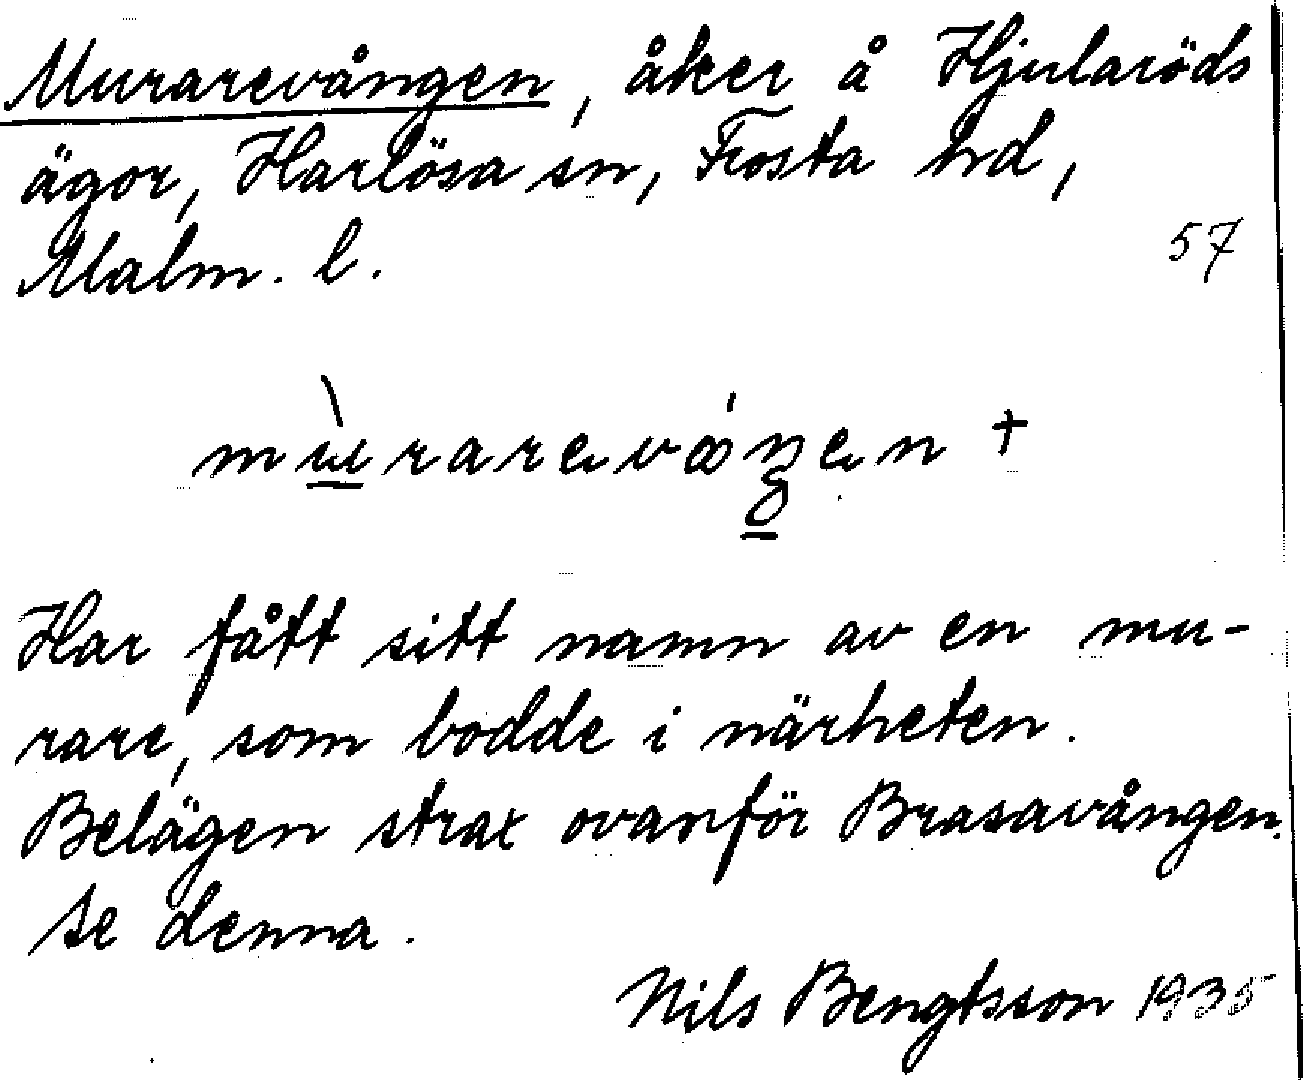 Murarevången, åker å Hjularöds
ägor, Harlösa sn, Frosta hd,
Malm. l.
57
Har fått sitt namn av en mu-
rare, som bodde i närheten.
Belägen strax ovanför Brasavången.
Se denna.
Nils Bengtsson 1935